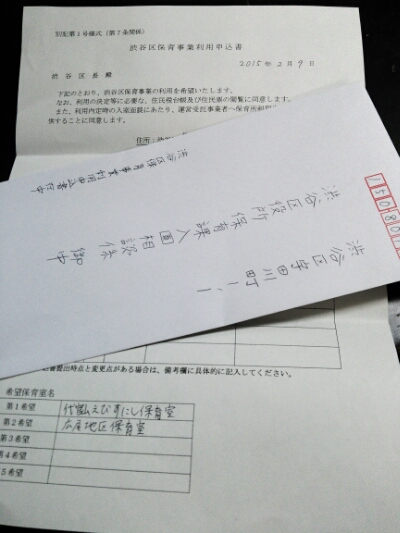 別記第1号様式（第7条関係）
渋谷区保育事業利用申込書
2015年2月9日
渋谷区長 殿
下記のとおり、渋谷区保育事業の利用を希望いたします。
なお、利用の決定等に必要な、住民税台帳及び住民票の閲覧に同意します。
また、利用内定時の入室面談にあたり、運営受託事業者へ保育所
供することに同意します。
住所
渋谷区保育事業利用申込書在中
渋谷区役所 保育課入園相談係 御中
渋谷区宇田川町1-1
150801
書提出時点と変更点がある場合は、備考欄に具体的に記入してください。
希望保育室名
第1希望 代官山えびすにし保育室
第2希望 広尾地区保育室
第3希望
第4希望
5希望